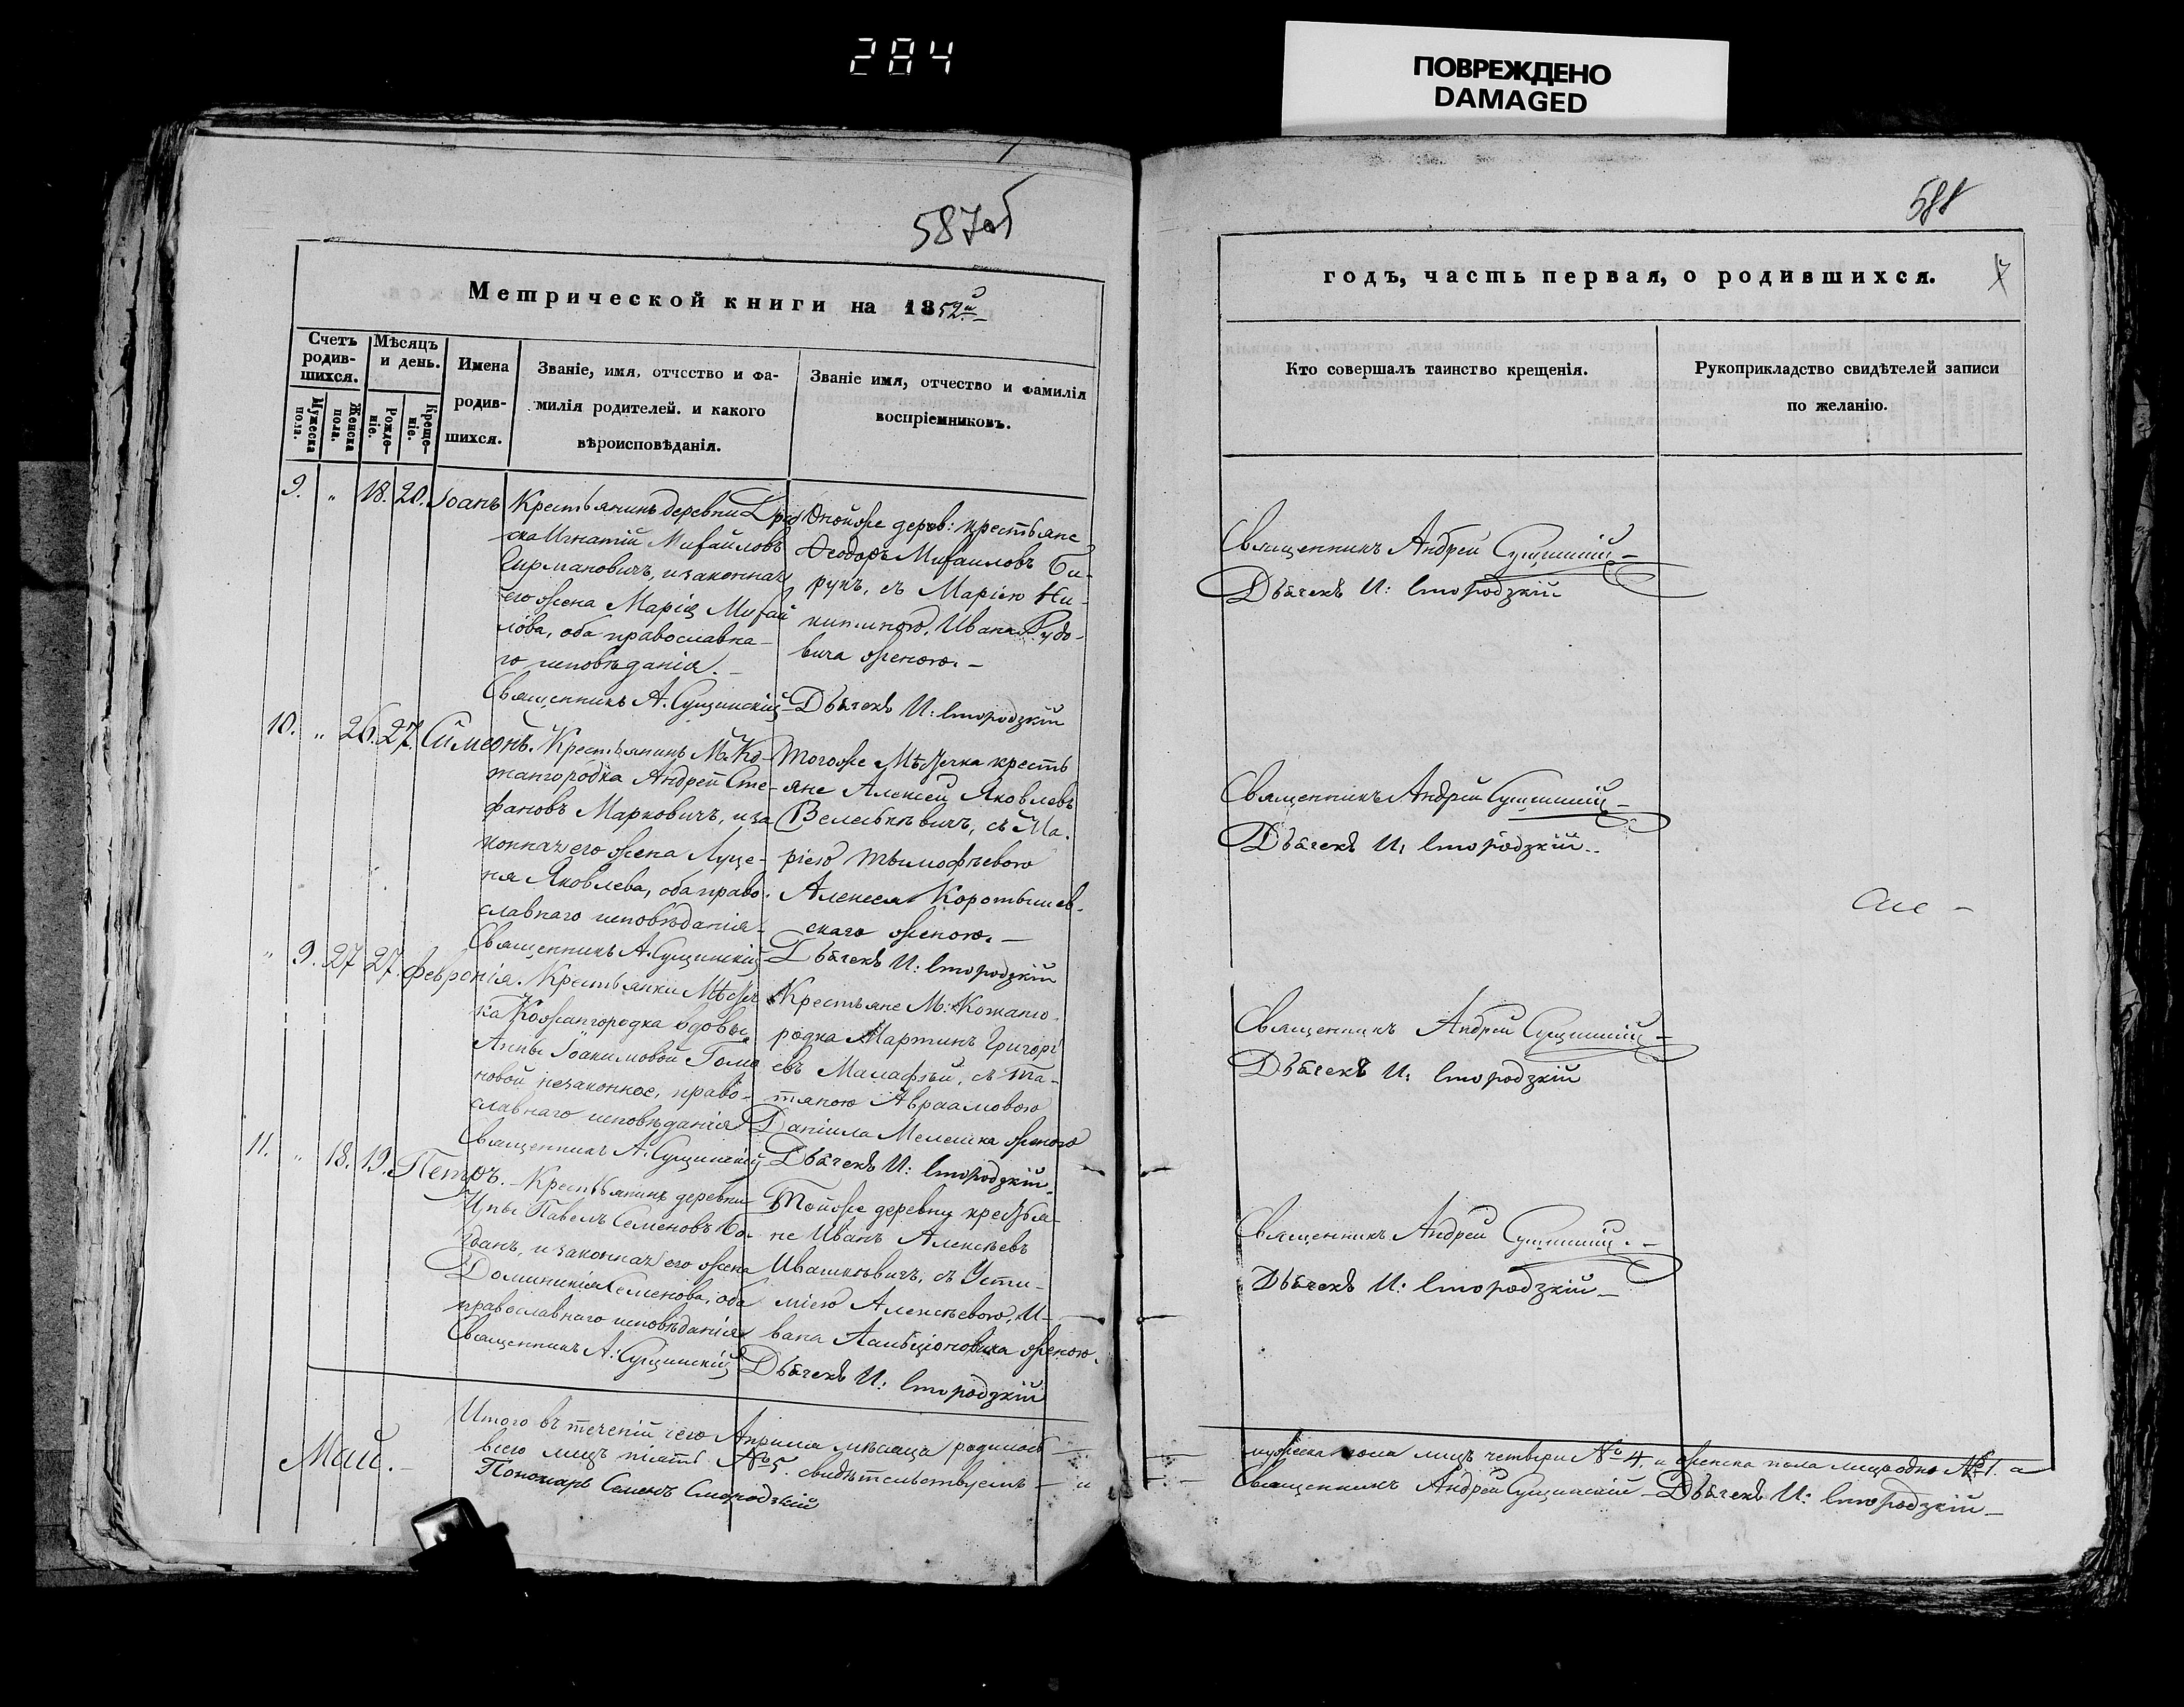 284
ПОВРЕЖДЕНО
DAMAGED
587об
Метрической книги на 1852й
Счетъ родив-шихся.
Мѣсяцъ и день.
Мужеска пола.
Женска пола.
Рожде-ніе.
Креще-ніе.
Имена родив-шихся.
Званіе, имя, отчество и фа-
милія родителей. и какого
вѣроисповѣданія.
Званіе имя, отчество и фамилія
воспріемниковъ.
9. „ 18. 20. Іоанъ
Крестьянинъ деревни
Игнатій Михайловъ
Сирмановичъ, и законная
его жена Марія Михай
лова, оба православна-
го исповѣданія.
Священникъ А. Сущинскій
Тойже дерев: крестьяне
Ѳеодоръ Михаиловъ Би-
рукъ, съ Маріею Ни-
китиною, Ивана Рудо-
вича женою. –
Дьячекъ И: Смородзкій
10. „ 26. 27. Сѵмеонъ.
Крестьянинъ М. Ко-
жангородка Андрей Сте-
фановъ Марковичъ, и за
конная его жена Луце-
ня Яковлева, оба право-
славнаго исповѣданія.
Священникъ А. Сущинскій
Тогоже Мѣстечка кресть
яне Алексей Яковлевъ
съ Ма-
ріею Тымофѣевою
Алексея Коротышев-
скаго женою. –
Дьячекъ И: Смородзкій
„ 9. 27 27. Февронія.
Крестьянки Мѣстеч
ка Кожангородка вдовы
Анны Іоакимовой Гома
новой незаконное, право-
славнаго исповѣданія
Священникъ А. Сущинскій
Крестьяне М: Кожанго
родка Мартинъ Григорі
евъ Малафѣй, съ Та-
тяною Авраамовою
Даніила Мелешка женою
Дьячекъ И: Смородзкій
11. „ 18. 19. Петръ.
Крестьянинъ деревни
Цны Павелъ Семеновъ Бо-
гданъ, и законная его жена
Доминикія Семенова, оба
православнаго исповѣданія
Священникъ А: Сущинскій
Тойже деревни крестья-
не Иванъ Алексѣевъ
Ивашкѣвичъ, съ Усти-
міею Алексѣевою, И-
вана женою.
Дьячекъ И: Смородзкій
Май. –
Итого въ теченіи сего Априля мѣсяца родилось –
всего лицъ пять №5. свидѣтельствуемъ – и
Пономарь Семенъ Смородзкій
588
годъ, часть первая, о родившихся.
7
Кто совершалъ таинство крещенія.
Рукоприкладство свидѣтелей записи
по желанію.
Священникъ Андрей Сущинскій –
Дьячекъ И: Смородзкій
Священникъ Андрей Сущинскій –
Дьячекъ И: Смородзкій
Священникъ Андрей Сущинскій –
Дьячекъ И: Смородзкій
Священникъ Андрей Сущинскій. –
Дьячекъ И: Смородзкій –
мужеска пола лицъ четыри №4. и женска пола лице одно №1. а
Священникъ Андрей Сущинскій – Дьячекъ И: Смородзкій –